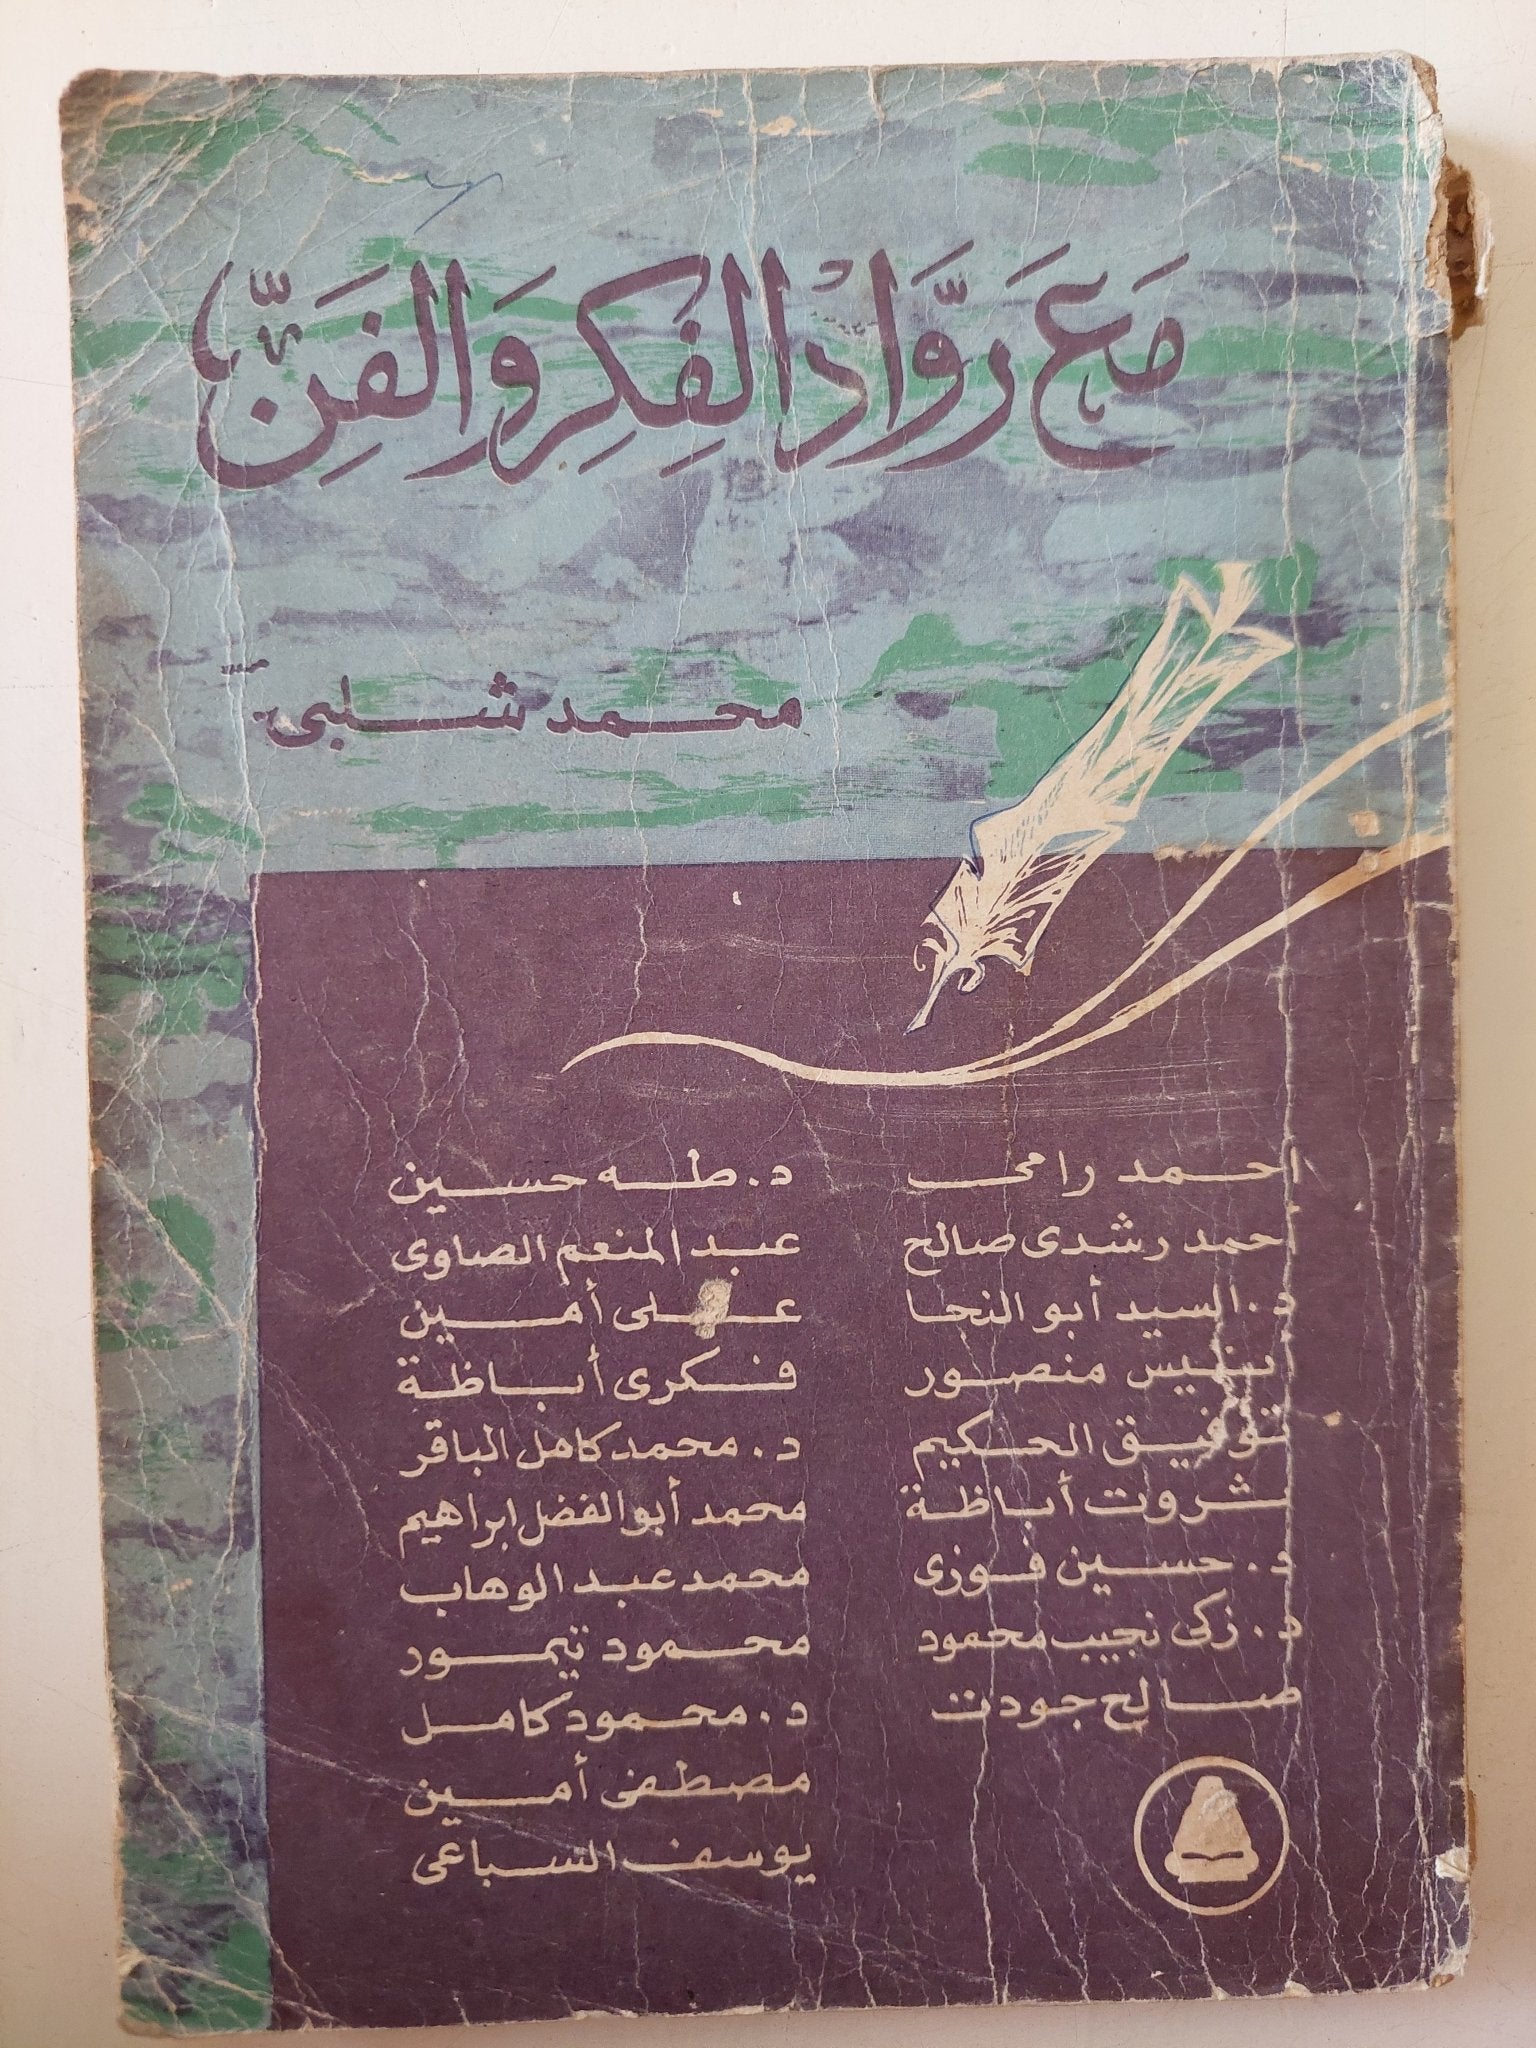 مَع رَوَّادْ الفِكِر وَالفَنِّ
محمد شلبى
احمد رامى
احمد رشدى صالح
د. السيد أبو النجا
أنيس منصور
توفيق الحكيم
ثروت أباظة
د. حسين فوزى
د. زكى نجيب محمود
صالح جودت
د. طه حسين
عبد المنعم الصاوى
على أمين
فكرى أباظة
د. محمد كامل الباقر
محمد أبو الفضل ابراهيم
محمد عبد الوهاب
محمود تيمور
د. محمود كامل
مصطفى أمين
يوسف السباعى